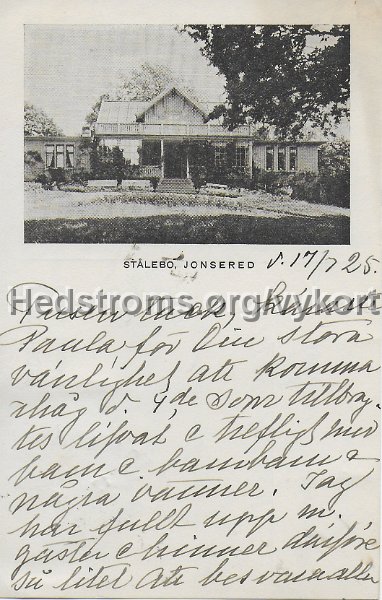 STÅLEBO, JONSERED d. 17/7 25.
Hedstroms.org/vykort
Tusen tack, kära
Paula för Din stora
vänlighet att komma
ihåg d. 4de som tillbrag-
tes lifvat & trefligt med
barn & barnbarn &
några vänner. Jag
har fullt upp m.
gäster & hinner därföre
så litet att besvara alla